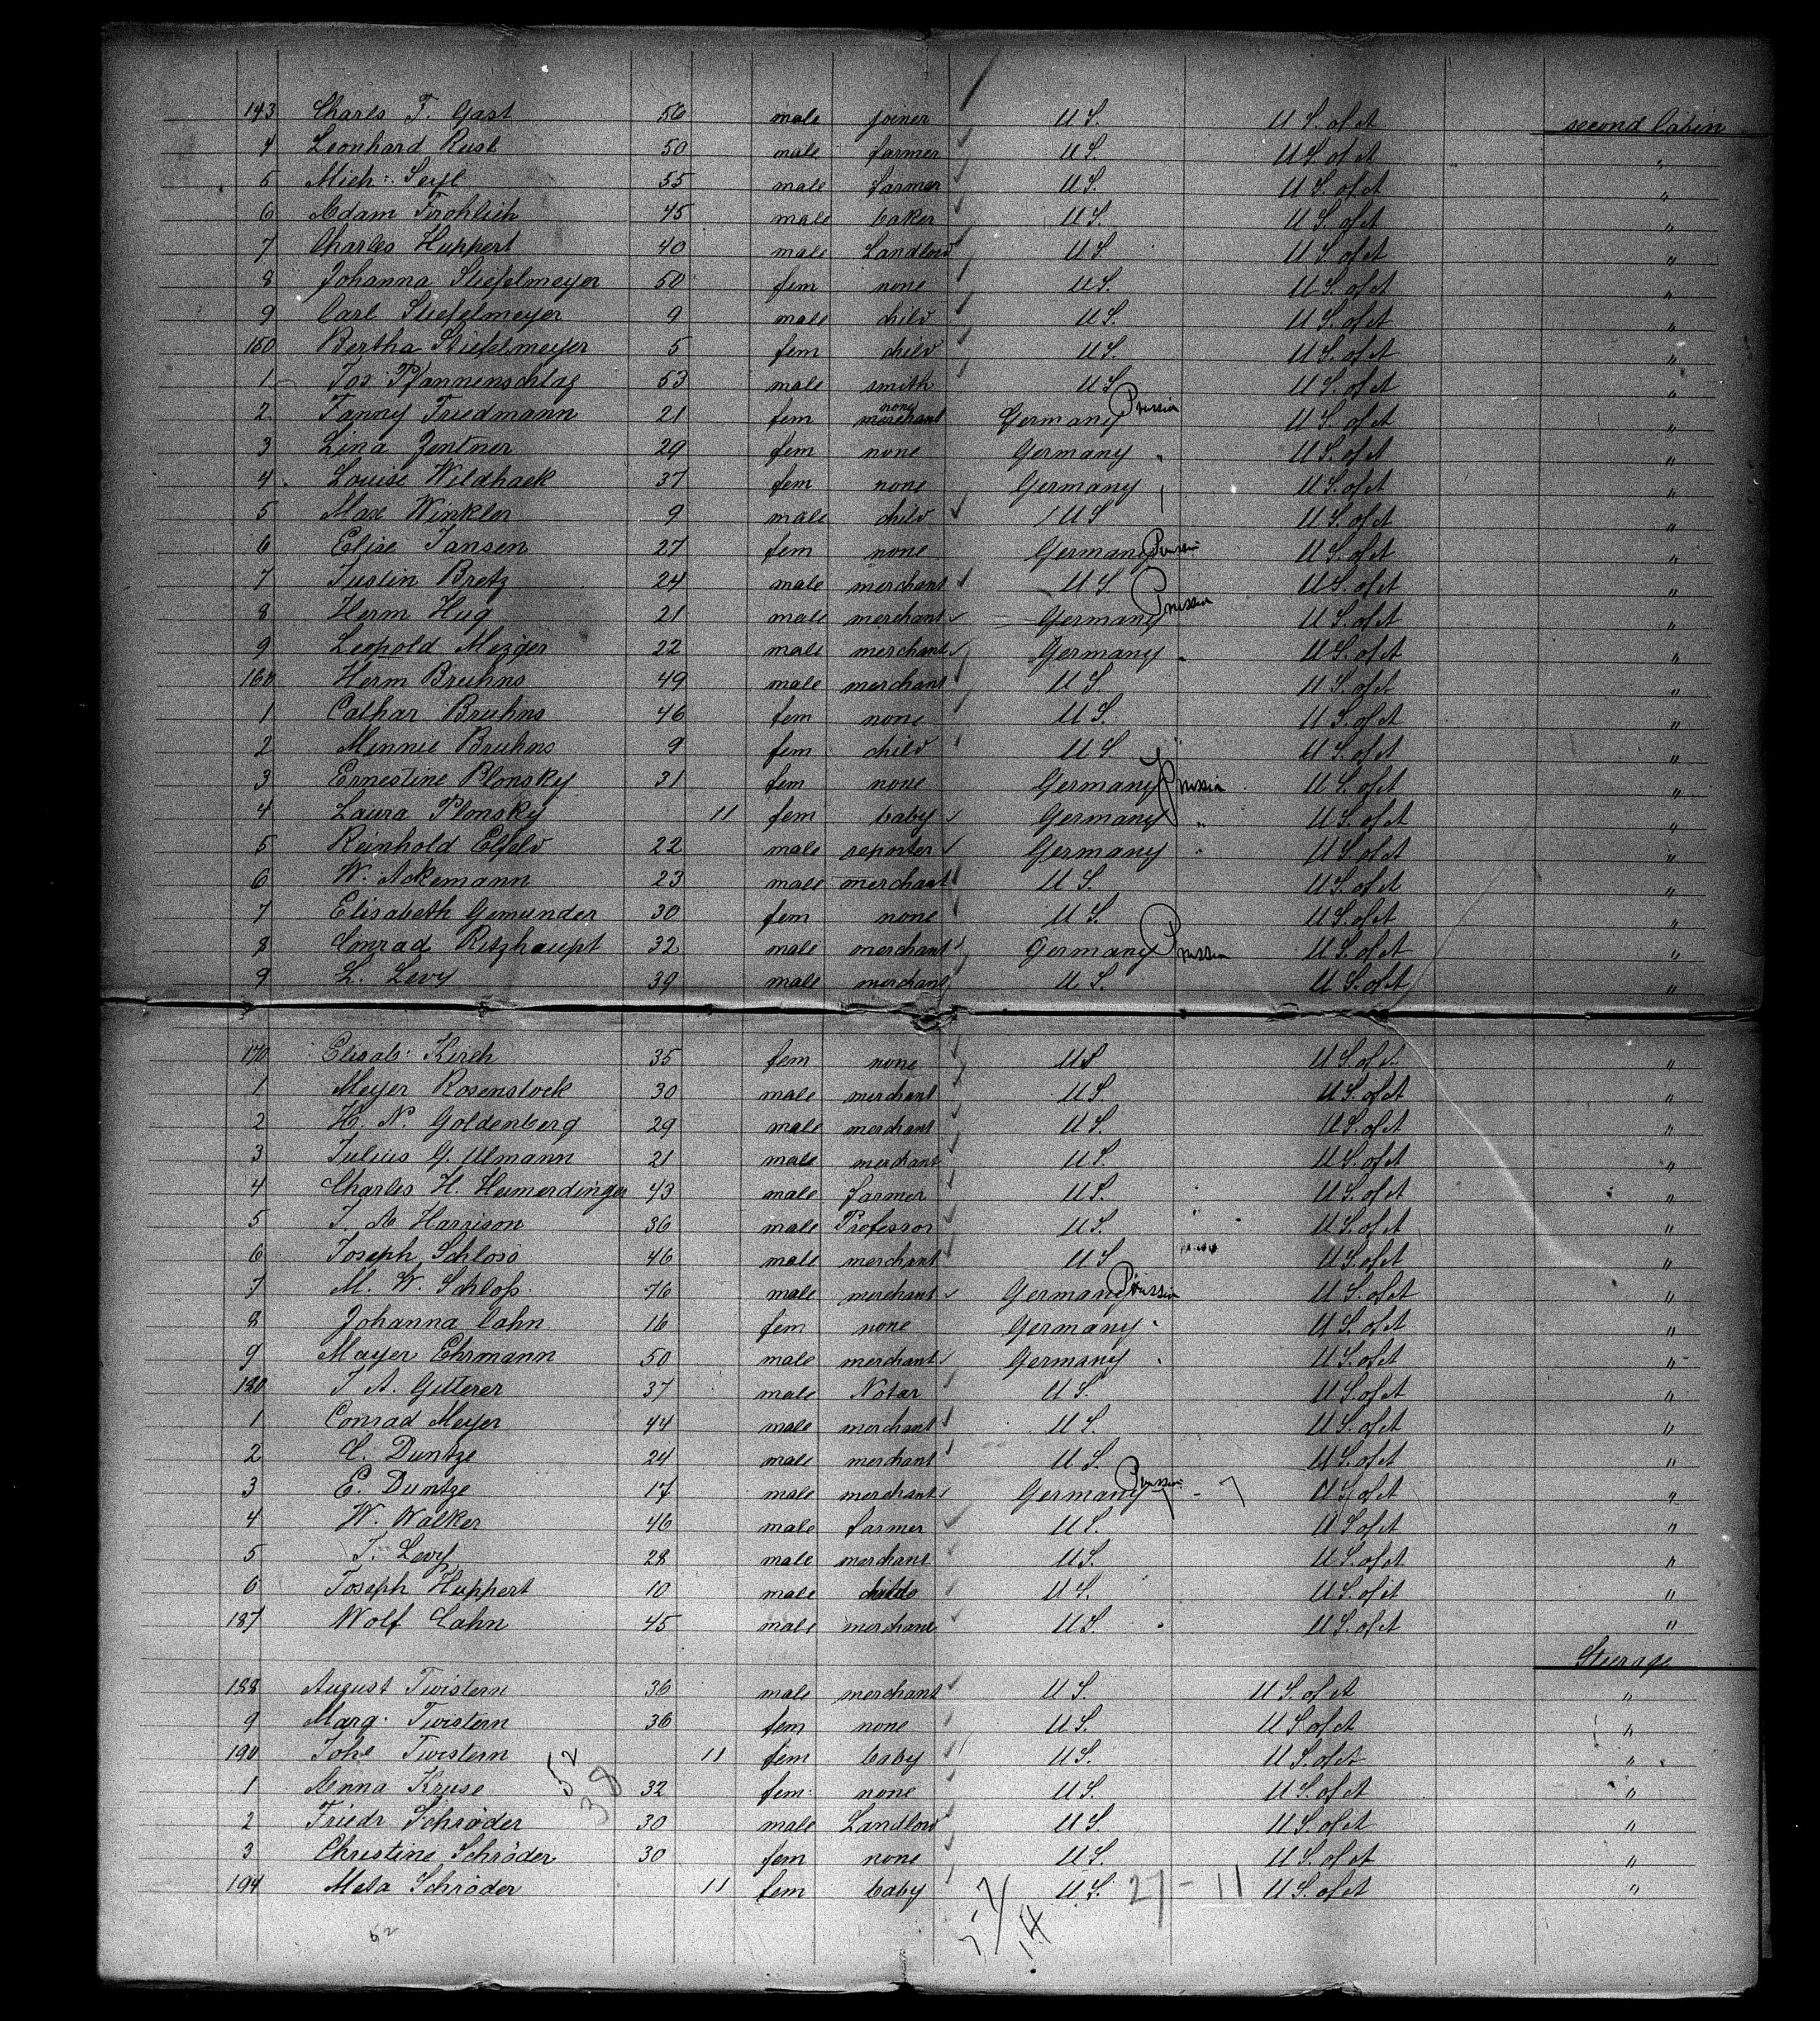 143 Charls F. Gast 56 male joiner U S. U S. of A second Cabin
4 Leonhard Rust 50 male farmer U S. U S. of A "
5 Mich: Seyl 55 male farmer U S. U S. of A "
6 Adam Frohlich 45 male baker U S. U S. of A "
7 Charles Huppert 40 male Landlord U S. U S. of A "
8 Johanna Stiefelmeyer 50 fem none U S. U S. of A "
9 Carl Stiefelmeyer 9 male child U S. U S. of A "
150 Bertha Stiefelmeyer 5 fem child U S. U S. of A "
1 Jos: Pfannenschlag 53 male smith U S. U S. of A "
2 Fanny Friedmann 21 fem merchant none Germany Prussia U S. of A "
3 Lina Zentner 29 fem none Germany " U S. of A "
4 Louise Wildhack 37 fem none Germany U S. of A "
5 Max Winkler 9 male child U S U S. of A "
6 Elise Jansen 27 fem none Germany Prussia U S. of A "
7 Justin Bretz 24 male merchant U S. U S. of A "
8 Herm Hug 21 male merchant Germany Prussia U S. of A "
9 Leopold Mezger 22 male merchant Germany " U S. of A "
160 Herm Bruhns 49 male merchant U S. U S. of A "
1 Cathar Bruhns 46 fem none U S. U S. of A "
2 Minnie Bruhns 9 fem child U S. U S. of A "
3 Ernestine Plonsky 31 fem none Germany Prussia U S. of A "
4 Laura Plonsky 11 fem baby Germany " U S. of A "
5 Reinhold Elfeld 22 male reporter Germany " U S. of A "
6 W. Ackemann 23 male merchant U S. U S. of A "
7 Elisabeth Gemunder 30 fem none U S. U S. of A "
8 Conrad Ritzhaupt 32 male merchant Germany Prussia U S. of A "
9 L. Levy 39 male merchant U S. U S. of A "
170 Elisab: Kirch 35 fem none U S U S. of A "
1 Meyer Rosenstock 30 male merchant U S U S. of A "
2 H. N. Goldenberg 29 male merchant U S. U S. of A "
3 Julius G. Ulmann 21 male merchant U S. U S. of A "
4 Charles H. Heimerdinger 43 male farmer U S. U S. of A "
5 J. A Harrison 36 male Professor U S. U S. of A "
6 Joseph Schloss 46 male merchant U S U S. of A "
7 M. W. Schloß. 76 male merchant Germany Prussia U S. of A "
8 Johanna Cahn 16 fem none Germany " U S. of A "
9 Mayer Ehrmann 50 male merchant Germany " U S. of A "
180 J A. Gitterer 37 male Notar U S. U S. of A "
1 Conrad Meyer 44 male merchant U S. U S. of A "
2 C. Duntze 24 male merchant U S. U S. of A "
3 E. Duntze 17 male merchant Germany Prussia U S. of A "
4 W. Walker 46 male farmer U S. U S. of A "
5 J. Levy 28 male merchant U S. U S. of A "
6 Joseph Huppert 10 male child U S. U S. of A "
187 Wolf Cahn 45 male merchant U S. U S. of A "
Steerage
188 August Twistern 36 male merchant U S. U S. of A "
9 Marg. Twistern 36 fem none U S. U S. of A "
190 Johe Twistern 11 fem baby U S. U S. of A "
1 Anna Kruse 52 38 32 fem none U S. U S. of A "
2 Friedr Schröder 30 male Landlord U S U S. of A "
3 Christine Schröder 30 fem none U S. U S. of A "
194 Meta Schröder 11 fem baby U S. 27 - 11 U S. of A "
14
52